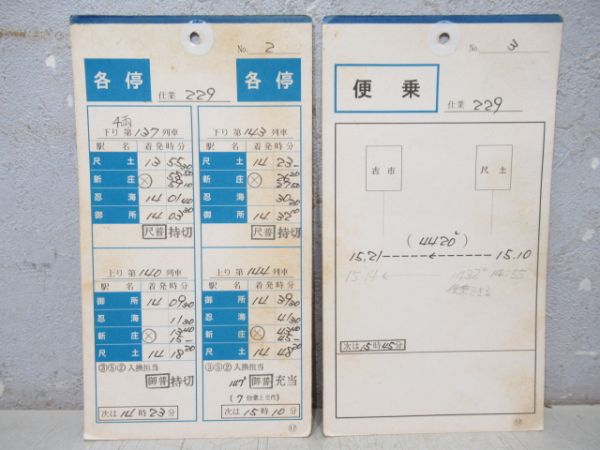 No. 2
各停 各停
仕業 229
4両
下り 第137列車
駅名 着発時分
尺土 13 55 30
新庄
忍海 14 01 40
御所 14 03 30
尺普 持切
下り 第143列車
駅名 着発時分
尺土 14 23 —
新庄
忍海 30 20
御所 14 32 10
尺普 持切
上り 第140列車
駅名 着発時分
御所 14 09 30
忍海 11 30
新庄
尺土 14 18 20
③⑤②入換担当
御普 持切
次は 14時23分
上り 第144列車
駅名 着発時分
御所 14 39 30
忍海 41 30
新庄
尺土 14 48 20
③⑤②入換担当
御普 充当
次は 15時10分
No. 3
便乗
仕業 229
古市 尺土
(4420)
15.21 15.10
15.14 14.55
次は 15時45分